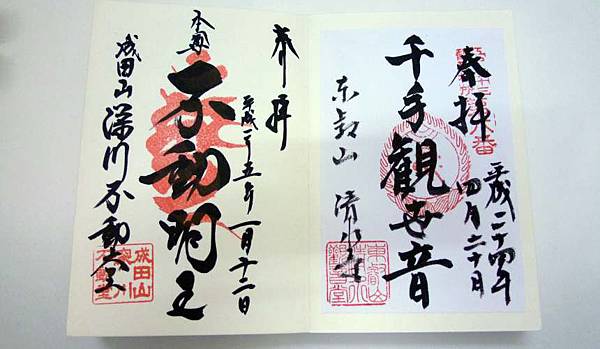 奉拝
平成二十四年
四月二十日
千手観世音
東叡山 清水堂
東叡山
奉拝
平成二十五年一月十二日
本尊
不動明王
成田山 深川不動堂
成田山